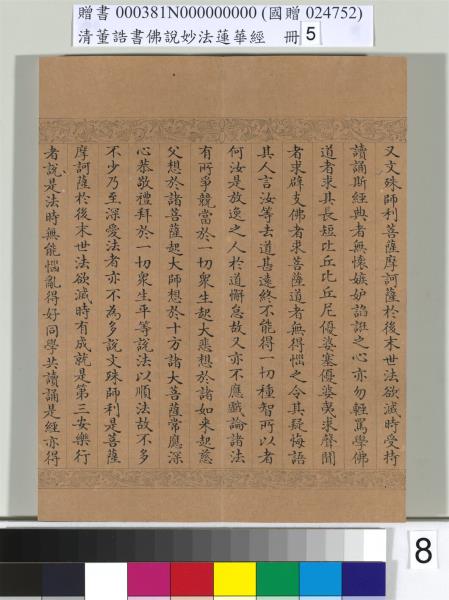 贈書 000381N000000000 (國贈 024752)
清董誥書佛說妙法蓮華經 冊 5
又文殊師利菩薩摩訶薩於後末世法欲滅時受持
讀誦斯經典者無懷嫉妒諂誑之心亦勿輕罵學佛
道者求其長短比丘比丘尼優婆塞優婆夷求聲聞
者求辟支佛者求菩薩道者無得惱之令其疑悔語
其人言汝等去道甚遠終不能得一切種智所以者
何汝是放逸之人於道懈怠故又亦不應戲論諸法
有所爭競當於一切眾生起大悲想於諸如來起慈
父想於諸菩薩起大師想於十方諸大菩薩常應深
心恭敬禮拜於一切眾生平等說法以順法故不多
不少乃至深愛法者亦不為多說文殊師利是菩薩
摩訶薩於後末世法欲滅時有成就是第三安樂行
者說是法時無能惱亂得好同學共讀誦是經亦得
8